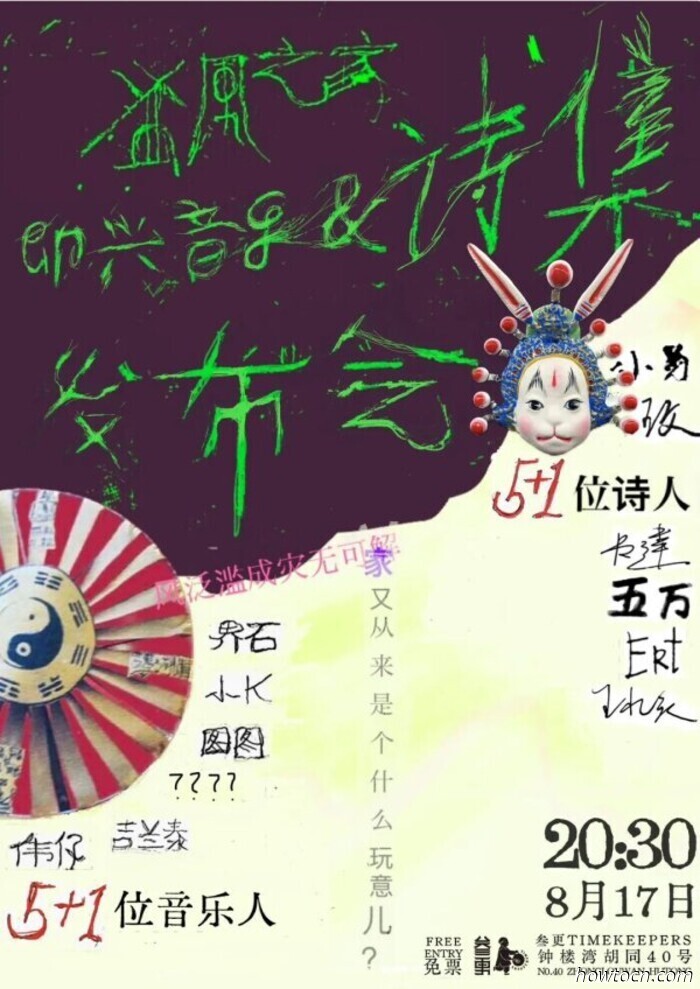 风之家
即兴音乐&诗集
发布会
小菊
5+1位诗人
书達
五万
ERt
风泛滥成灾无可解
家又从来是个什么玩意儿？
界石
小K
图图
????
伟仔
吉兰泰
5+1位音乐人
20:30
8月17日
FREE
ENTRY
免票
叁更
叁更TIMEKEEPERS
钟楼湾胡同40号
NO.40 ZHONGLOUWAN HUTONG
howtocn.com